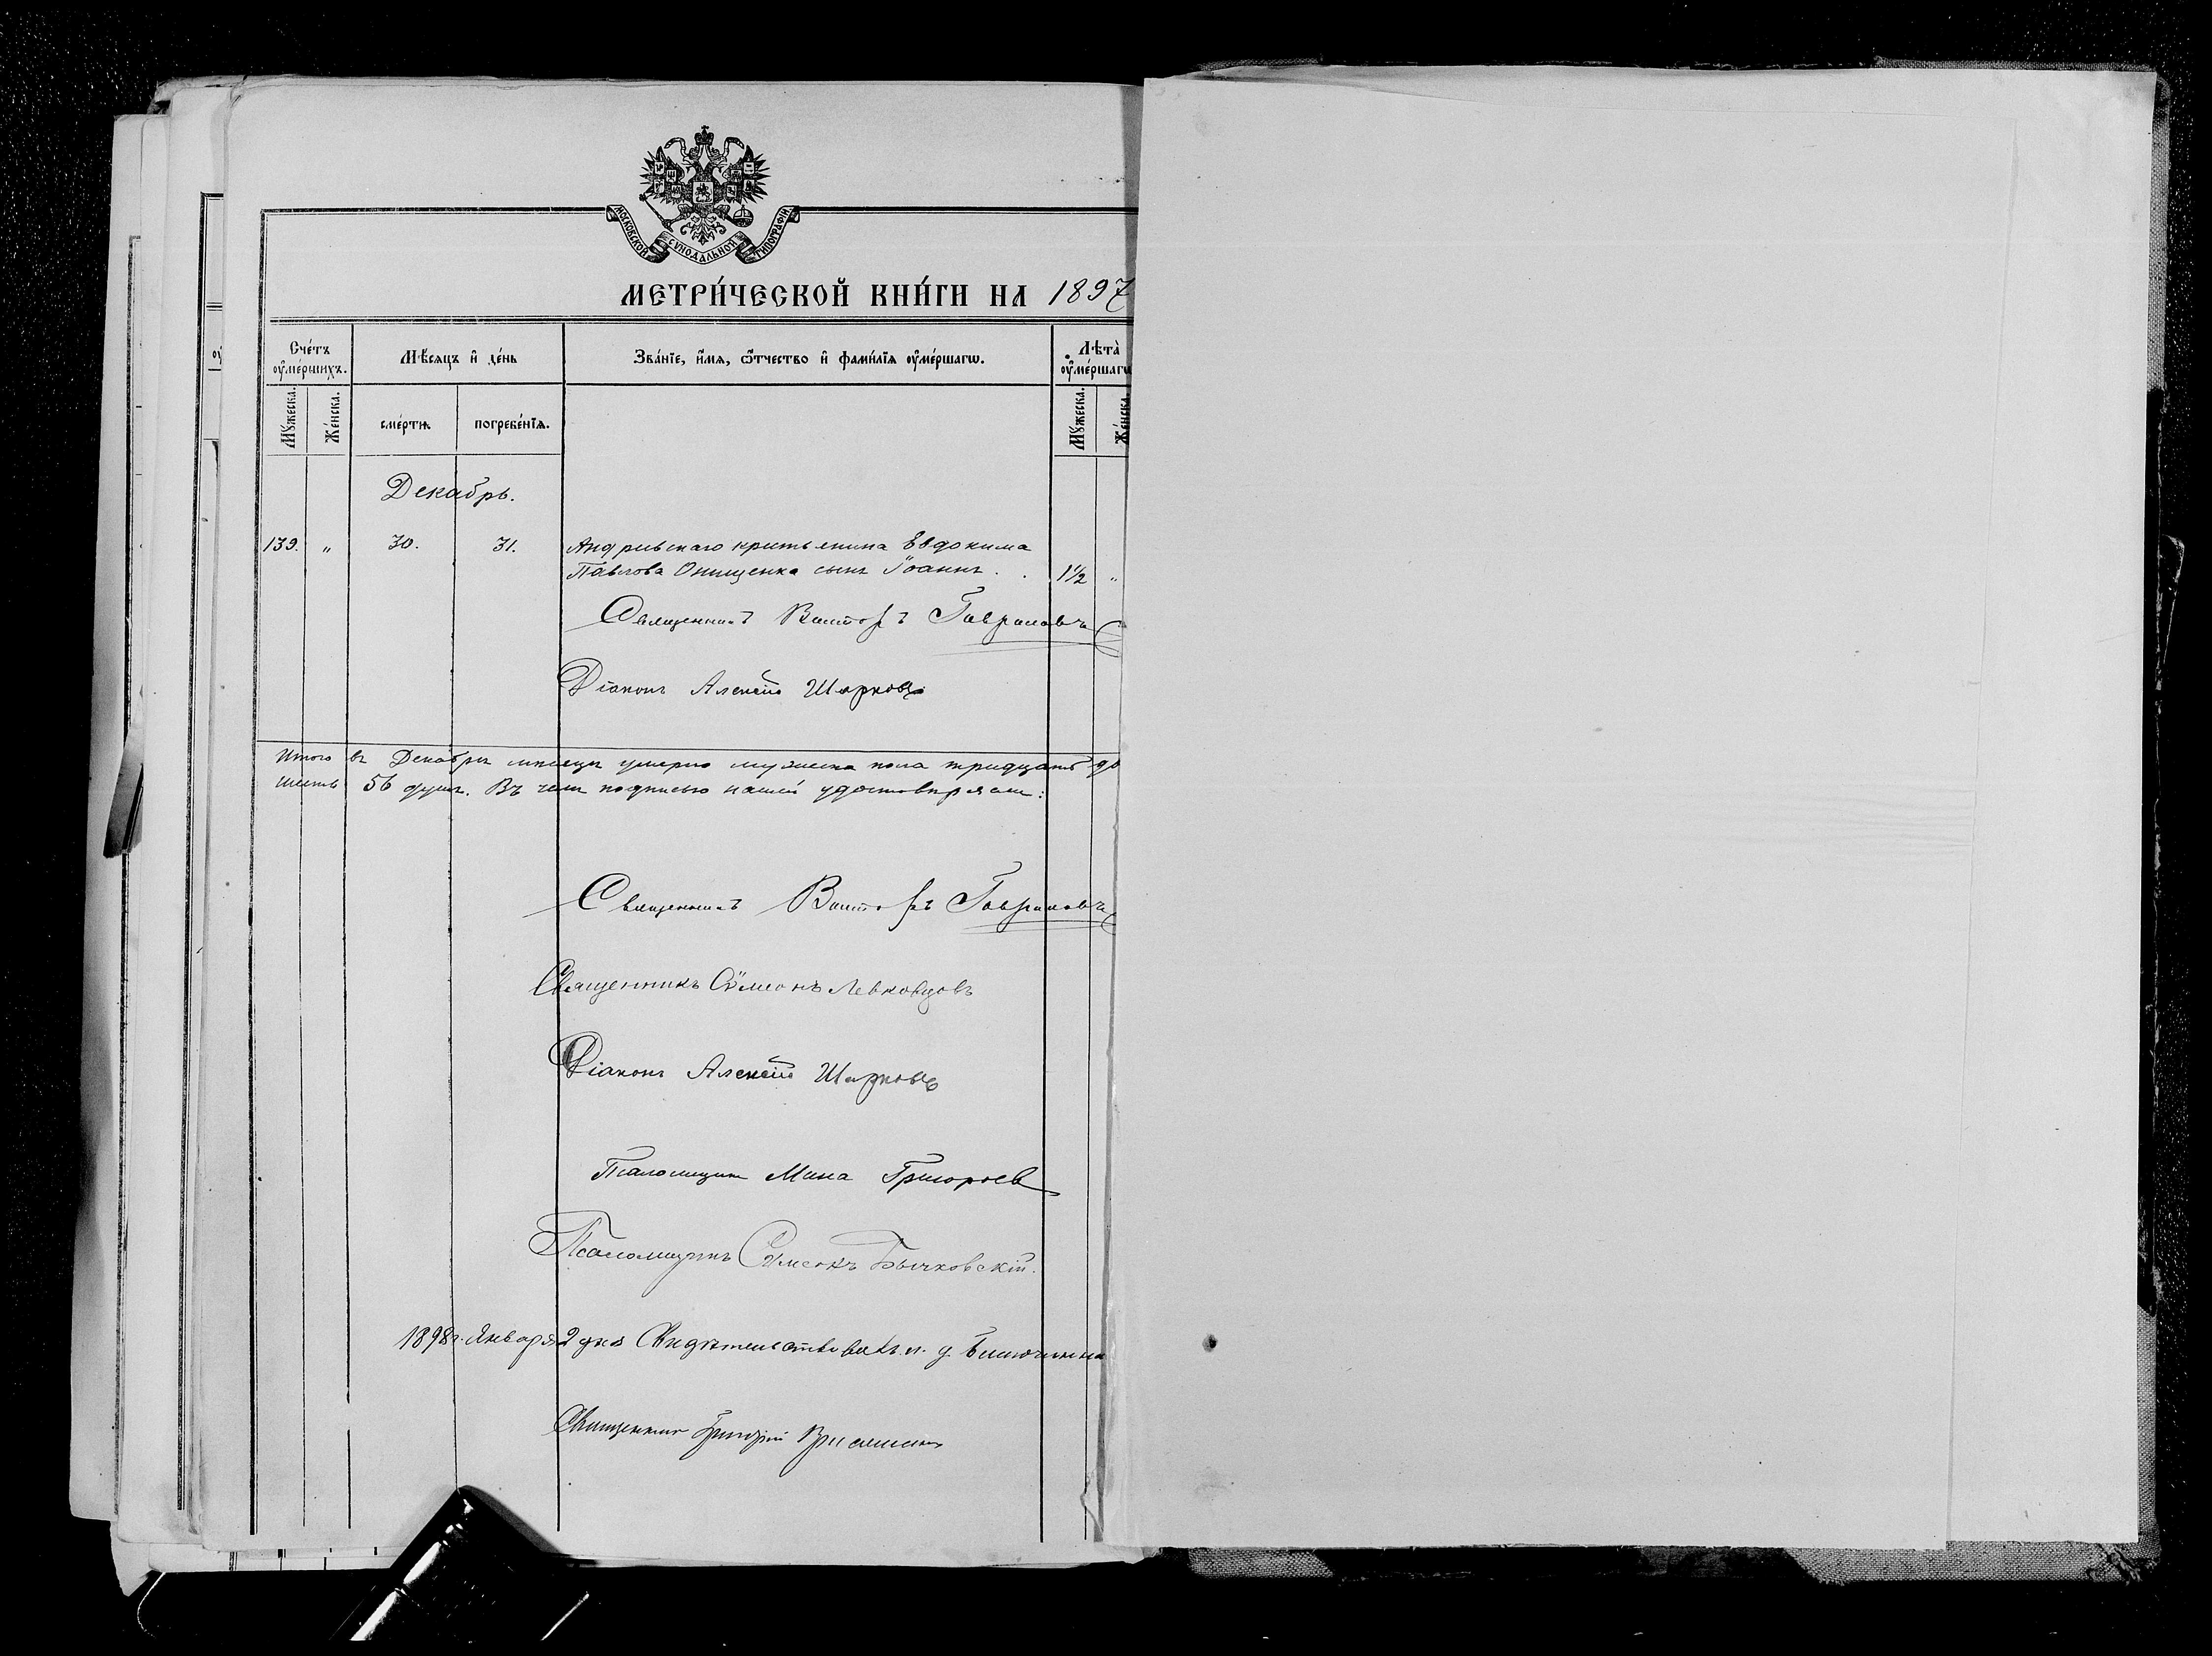 МОСКОВСКОЙ СѴНОДАЛЬНОЙ ТИПОГРАФІИ.
МЕТРИ́ЧЕСКОЙ КНИ́ГИ НА 1897
Сче́тъ ᲂу҆ме́ршихъ.
Мѣ́сяцъ и҆ де́нь
Зва́нїе, и҆́мя, ѻ҆́тчество и҆ фами́лїя ᲂу҆ме́ршагѡ.
Лѣта̀ ᲂу҆ме́ршагѡ
Мꙋ́жеска.
Же́нска.
сме́рти
погребе́нїѧ.
Мꙋ́жеска.
Же́нска
Декабрь.
139. " 30. 31. Андреевскаго крестьянина Евдокима
Павлова Онищенка сынъ Іоаннъ. . 1½ "
Священникъ Викторъ Гавриловъ
Діаконъ Алексій Шарковъ
Итого въ Декабрѣ мѣсяцѣ умерло мужеска пола тридцать
шесть 56 душъ. Въ чемъ подписью нашей удостовѣряемъ:
Священникъ Викторъ Гавриловъ
Священникъ Сѵмеонъ Левковцовъ
Діаконъ Алексій Шарковъ
Псаломщикъ Мина Григорьев
Псаломщикъ Сѵмеонъ Бычковскій.
1898 г. Января 2 дня Свидѣтельствовалъ и. д. благочиннаго
Священникъ Григорій